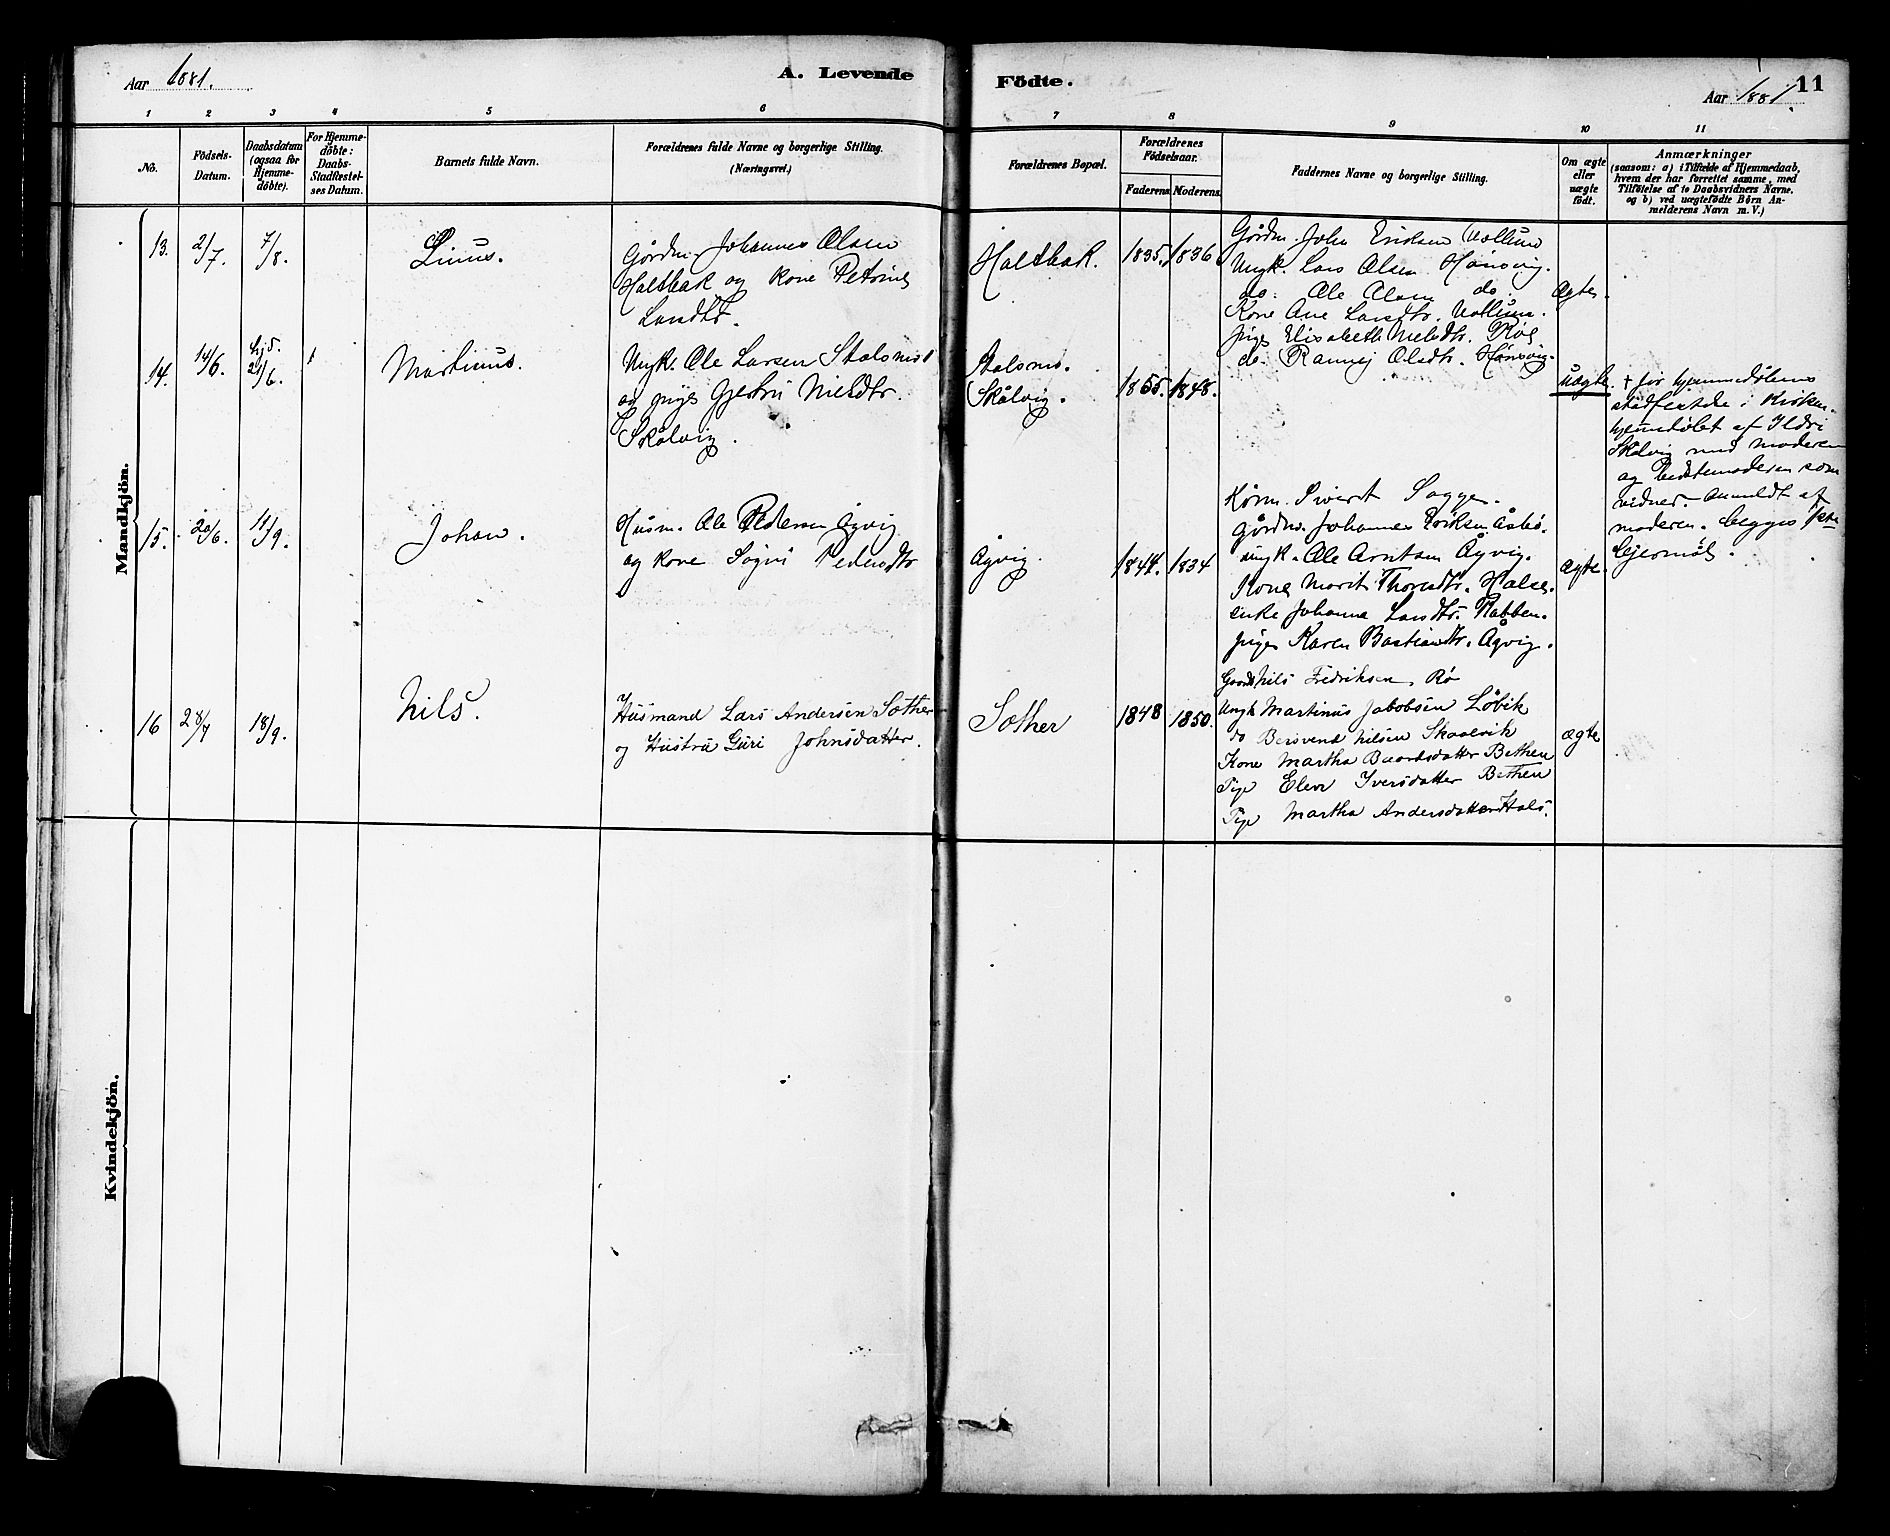 Aar 1881.
A. Levende
Födte.
Aar 1881.
11
1 2 3 4 5 6 7 8 9 10 11
No.
Födsels-
Datum.
Daabsdatum
(ogsaa for
Hjemme-
döbte).
For Hjemme-
döbte:
Daabs-
Stadfæstel-
ses Datum.
Barnets fulde Navn.
Forældrenes fulde Navne og borgerlige Stilling.
(Næringsvei.)
Forældrenes Bopæl.
Forældrenes
Födselsaar.
Faderens. Moderens.
Faddernes Navne og borgerlige Stilling.
Om ægte
eller
uægte
födt.
Anmærkninger
(saasom: a) i Tilfælde af Hjemmedaab,
hvem der har forrettet samme, med
Tilföielse af to Daabsvidners Navne,
og b) ved uægtefödte Börn An-
melderens Navn m. V.)
Mandkjön.
13. 2/7. 7/8.
Linus.
Gårdm. Johannes Olsen
Haltbak og kone Petrine
Larsdtr.
Haltbak.
1835. 1836
Gårdm. John Eriksen Vollum
Ungk. Lars Olsen Hønsvig.
do. Ole Olsen do.
Kone Ane Larsdtr. Vollum.
pige Elisabeth Nielsdtr. Røe
do. Rannej Olsdtr. Hønsvig.
Ægte.
14. 14/6. hjd. 21/6. †
Martinus.
Ungk. Ole Larsen Stolsnes
og pige Gjertru Nielsdtr.
Skålvig.
Stolsnes.
Skålvig.
1855. 1848.
uægte
† før hjemmedåbens
stadfestelse i Kirken.
hjemmedøbt af Ildri
Skålvig med moderen
og bedstemoderen som
vidner. Anmeldt af
moderen. begges 1ste
lejermål.
15. 20/6. 11/9.
Johan.
Husm. Ole Pedersen Ågvig
og kone Sigri Pedersdtr
Ågvig.
1844. 1834
Kårm. Sivert Sogge.
Gårdm. Johannes Eriksen Åsbø.
ungk. Ole Arntsen Ågvig.
Kone Marit Thoresdtr. Halse.
enke Johanna Larsdtr. Rabben.
pige Karen Bastiansdtr. Ågvig.
Ægte.
16 28/7 18/9.
Nils.
Husmand Lars Andersen Sother
og Hustru Guri Johnsdatter.
Sother
1848 1850.
Gaardm Nils Fredriksen, Rø
Ungk Martinus Jakobsen Løvik
do Bersvend Nilsen Skaalvik
Kone Martha Baardsdatter Bethen
Pige Elen Iversdatter Bethen
Pige Martha Andersdatter Hals.
ægte
Kvindekjön.